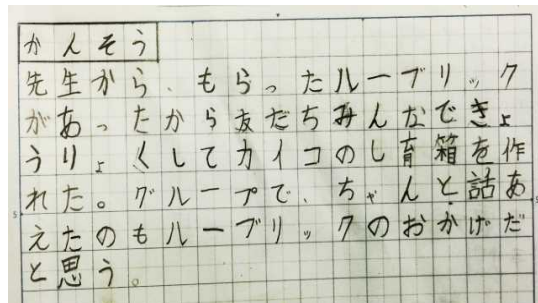 かんそう
先生から、もらったルーブリック
があったから友だちみんなできょ
うりょくしてカイコのし育箱を作
れた。グループで、ちゃんと話あ
えたのもルーブリックのおかげだ
と思う。